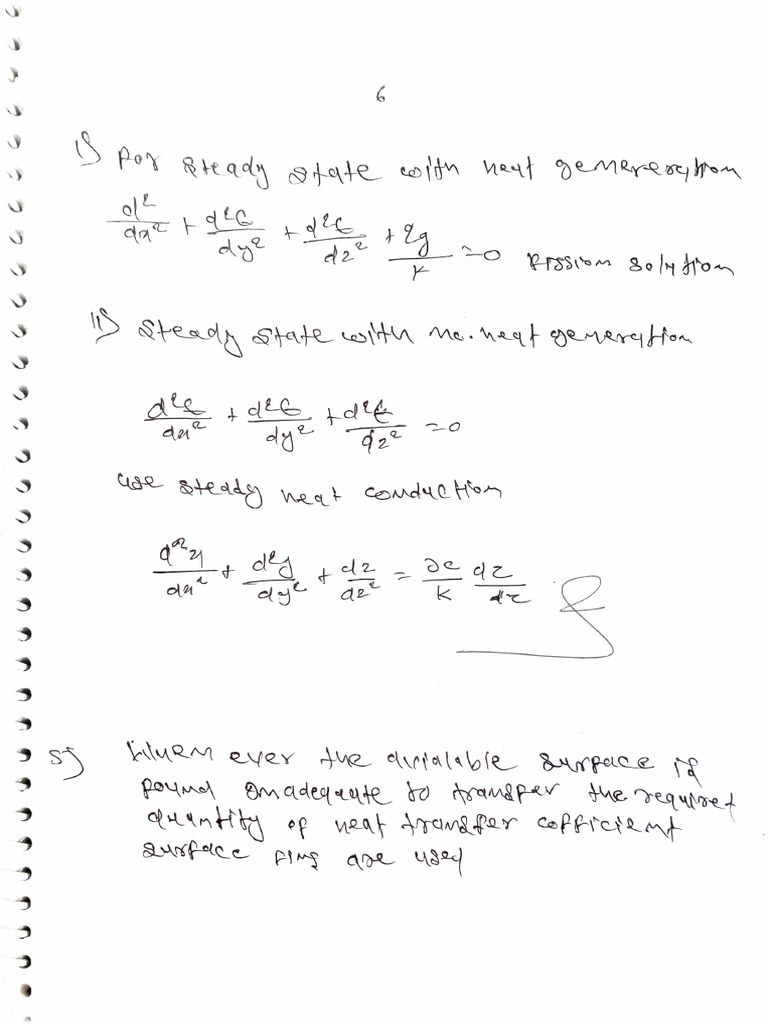 6
1) For steady state with heat genereration
d²/dx² + d²t/dy² + d²t/dz² + qg/k = 0 Fission solution
11) Steady state with no. heat generation
d²t/dx² + d²t/dy² + d²t/dz² = 0
use steady heat conduction
+ d²y/dy² + dz/dz² =
5)
When ever the avialable surface is
found onadequate to transfer the required
quantity of heat transfer cofficient
surface fins are used